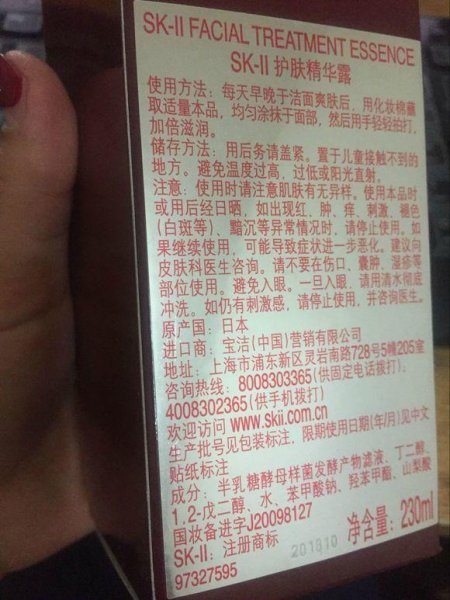 SK-II FACIAL TREATMENT ESSENCE
SK-II 护肤精华露
使用方法：每天早晚于洁面爽肤后，用化妆棉蘸
取适量本品，均匀涂抹于面部，然后用手轻轻拍打，
加倍滋润。
储存方法：用后务请盖紧。置于儿童接触不到的
地方。避免温度过高，过低或阳光直射。
注意：使用时请注意肌肤有无异样。使用本品时
或用后经日晒，如出现红、肿、痒、刺激、褪色
(白斑等)、黯沉等异常情况时，请停止使用。如
果继续使用，可能导致症状进一步恶化。建议向
皮肤科医生咨询。请不要在伤口、囊肿、湿疹等
部位使用。避免入眼。一旦入眼，请用清水彻底
冲洗。如仍有刺激感，请停止使用，并咨询医生。
原产国：日本
进口商：宝洁(中国)营销有限公司
地址：上海市浦东新区灵岩南路728号5幢205室
咨询热线：8008303365(供固定电话拨打)，
4008302365(供手机拨打)
欢迎访问 www.skii.com.cn
生产批号见包装标注，限期使用日期(年/月)见中文
贴纸标注
成分：半乳糖酵母样菌发酵产物滤液、丁二醇、
1,2-戊二醇、水、苯甲酸钠、羟苯甲酯、山梨酸
国妆备进字J20098127
SK-II：注册商标 201810 净含量：230ml
97327595